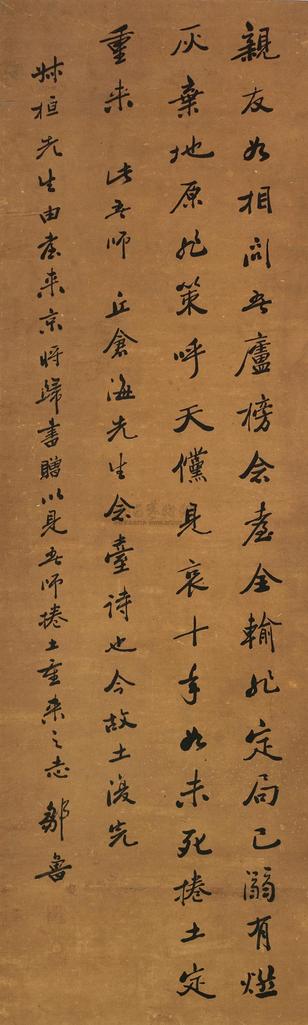 親友如相問吾廬榜念臺全輸非定局已溺有燃
灰棄地原非策呼天儻見哀十年如未死捲土定
重来 此吾師 丘倉海先生念臺詩也今故土復完
妹桓先生由臺来京将歸書贈以見吾師捲土重来之志 鄒魯